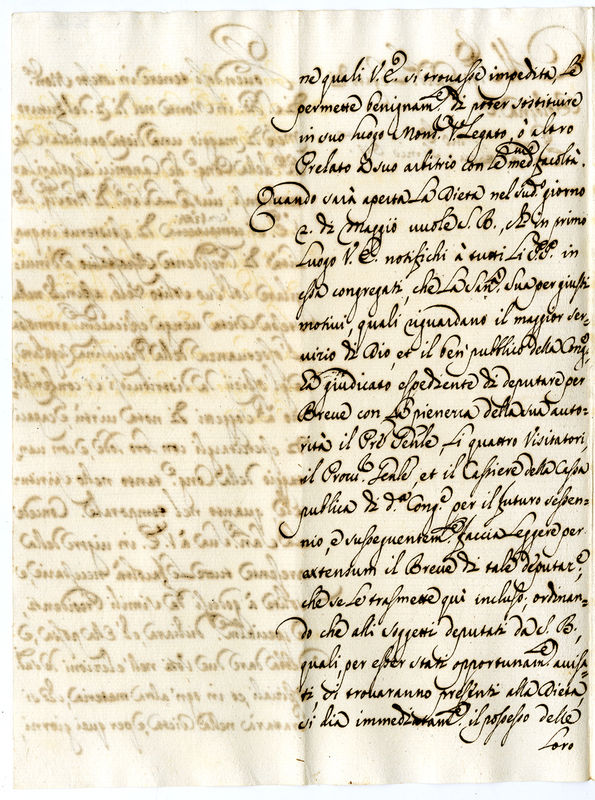 ne quali V. E. si trovasse impedita, Le
permette benignam.te di poter sostituire
in suo luogo Mons.r V.e Legato, ò altro
Prelato à suo arbitrio con le med.me facoltà.
Quando sarà aperta la Dieta nel sud.o giorno
2. di Maggio vuole S. B., che in primo
luogo V. E. notifichi à tutti li PP. in
essa congregati, che la San.tà Sua per giusti
motivi, quali riguardano il maggior ser-
vizio di Dio, et il ben publico della Cong.e
hà giudicato espediente di deputare per
Breve con la pienezza della sua auto-
rità il Pre Gen̄le, li quattro Visitatori,
il Procu.r Gen̄le, et il Cassiere della Cassa
publica di d.a Cong.e per il futuro sessen-
nio, e susseguentem.te faccia leggere per
extensum il Breve di tale deputaz.e,
che se le trasmette quì incluso; ordinan-
do che alli soggetti deputati da S. B.,
quali, per esser stati opportunam.te avvisa-
ti, si trovaranno presenti alla Dieta,
si dia immediatam.te il possesso delle
Loro